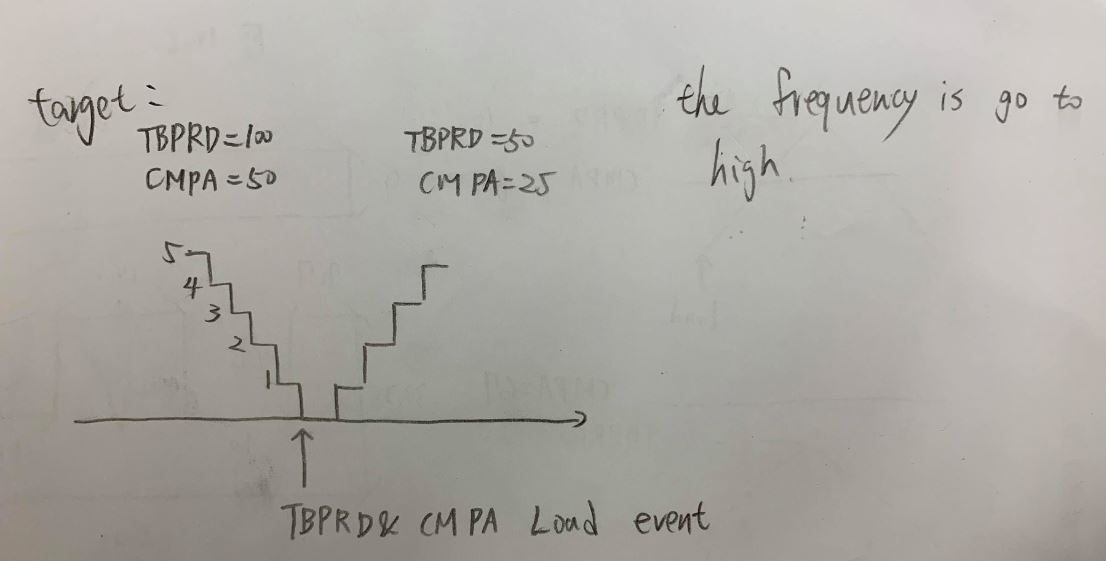 target:
TBPRD=100
CMPA=50
TBPRD=50
CMPA=25
the frequency is go to
high.
5
4
3
2
1
TBPRD& CMPA Load event